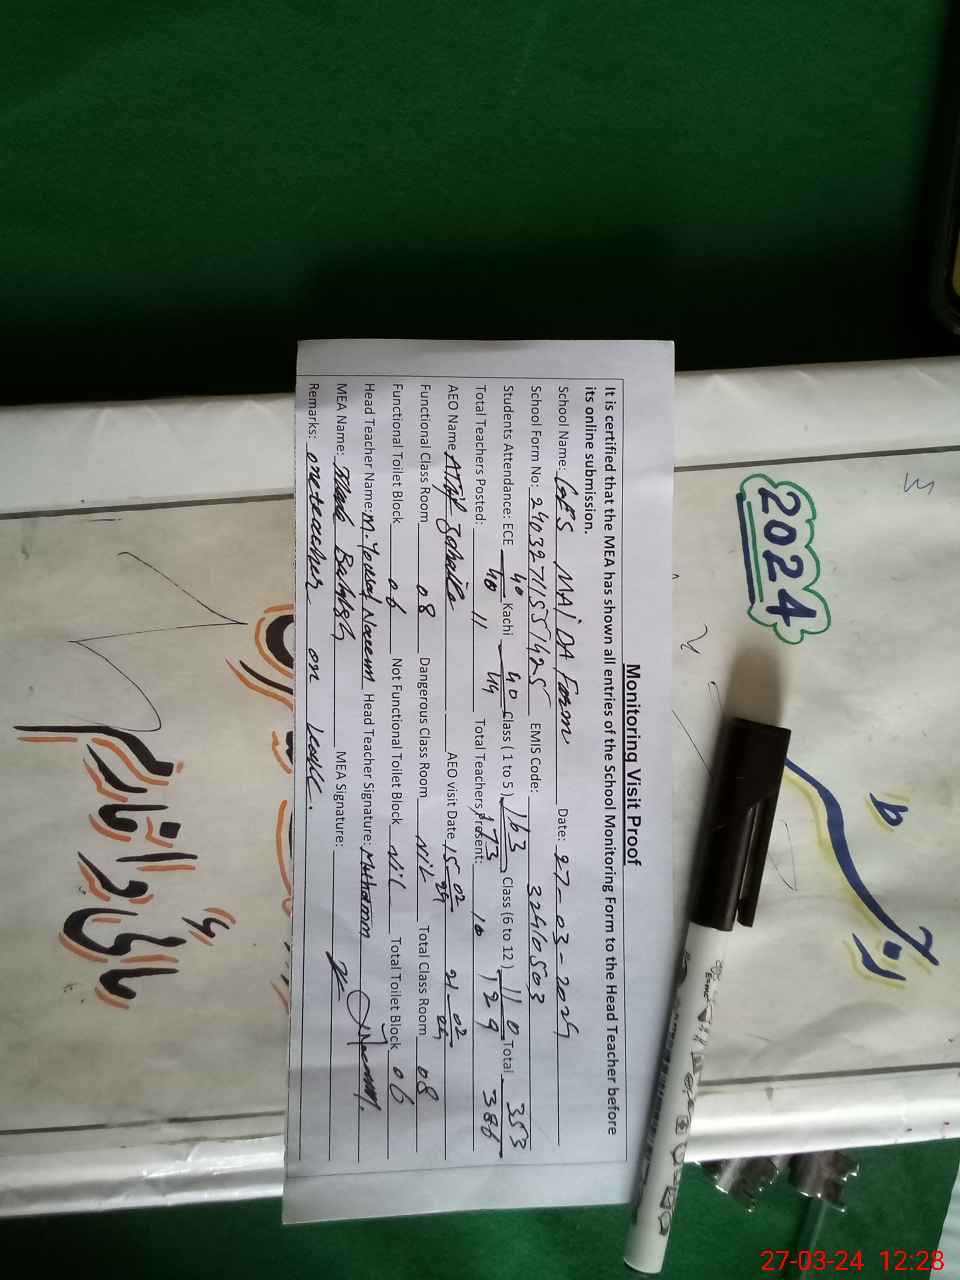 Monitoring Visit Proof
It is certified that the MEA has shown all entries of the School Monitoring Form to the Head Teacher before
its online submission.
School Name: GES MAIDA Farm Date: 27-03-2024
School Form No: 24032711551425 EMIS Code: 32410503
Students Attendance: ECE 40/40 Kachi 40/44 Class ( 1 to 5 ) 163/173 Class (6 to 12 ) 110/129 Total 353/386
Total Teachers Posted: 11 Total Teachers Present: 10
AEO Name AEO visit Date 15 02/24 21 02/24
Functional Class Room 08 Dangerous Class Room NiL Total Class Room 08
Functional Toilet Block 06 Not Functional Toilet Block NiL Total Toilet Block 06
Head Teacher Name: M. Yousaf Naeem Head Teacher Signature:
MEA Name: MEA Signature:
Remarks: one teacher on leave.
2024
27-03-24 12:28